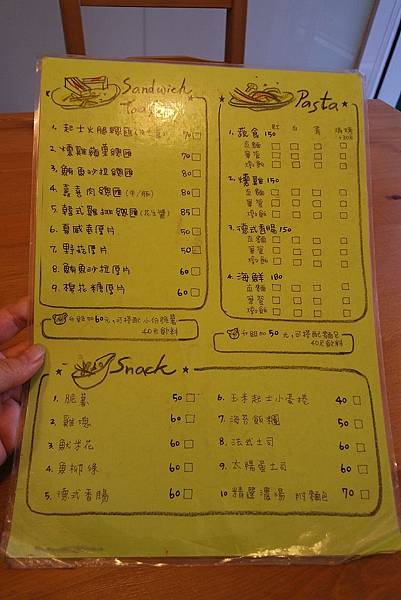 Sandwich
Toast
1. 起士火腿總匯 70
2. 燻雞蘋果總匯 70
3. 鮪魚沙拉總匯 80
4. 嘉喜肉總匯(牛/豚) 80
5. 韓式雞排總匯(花生醬) 85
6. 夏威夷厚片 50
7. 野菇厚片 50
8. 鮪魚沙拉厚片 60
9. 棉花糖厚片 60
Pasta
紅 白 青 焗烤
+30元
1. 蔬食 150
直麵
筆管
燉飯
2. 燻雞 150
直麵
筆管
燉飯
3. 德式香腸 150
直麵
筆管
燉飯
4. 海鮮 180
直麵
筆管
燉飯
加60元,可搭配小份脆薯
40元飲料
加50元,可搭配麵包
40元飲料
Snack
1. 脆薯 50
2. 雞塊 60
3. 魷米花 60
4. 魚柳條 60
5. 德式香腸 60
6. 玉米起士小蛋捲 40
7. 海苔飯糰 50
8. 法式土司 60
9. 太陽蛋土司 60
10 精選濃湯 附麵包 70